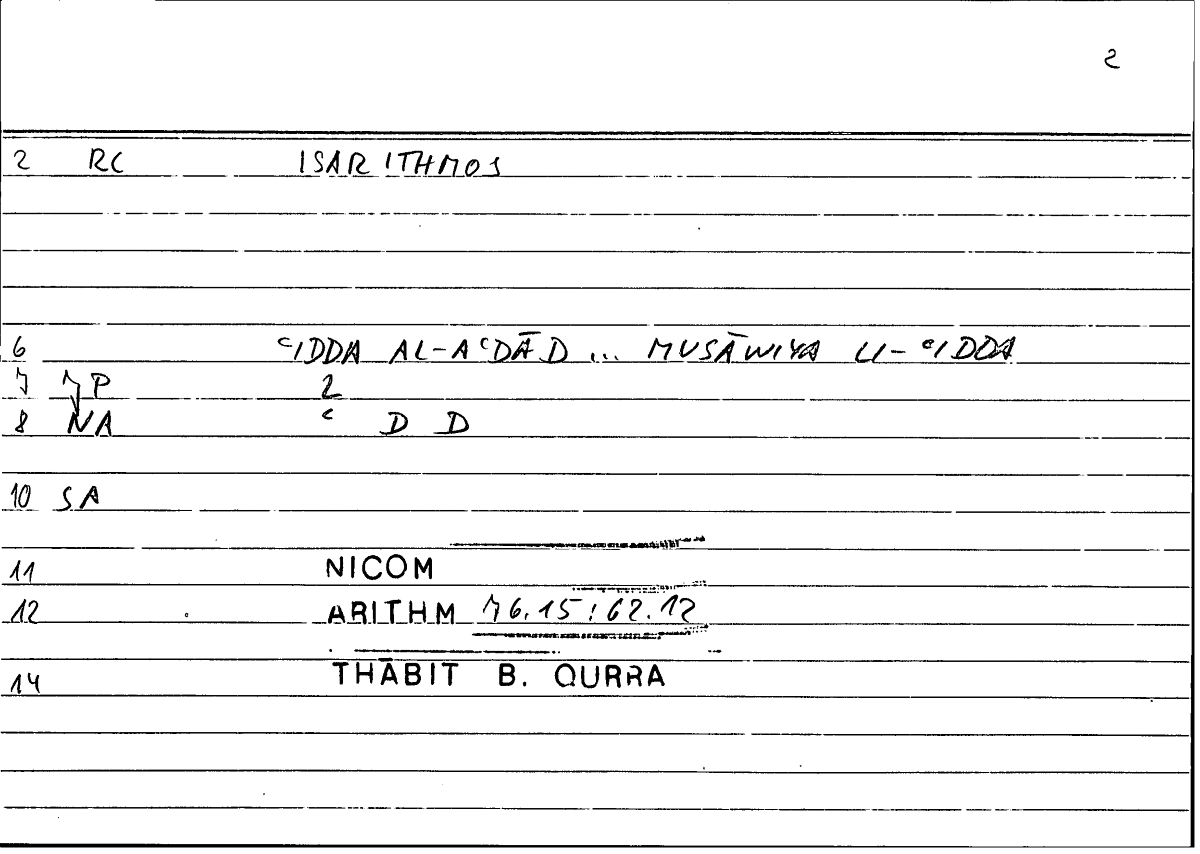 2
2 RC ISARITHMOS
6 ʿIDDA AL-AʿDĀD ... MUSĀWIYA LI-ʿIDDA
7 7P 2
8 NA ʿ D D
10 SA
11 NICOM
12 ARITHM 76.15 : 62.12
14 THĀBIT B. QURRA